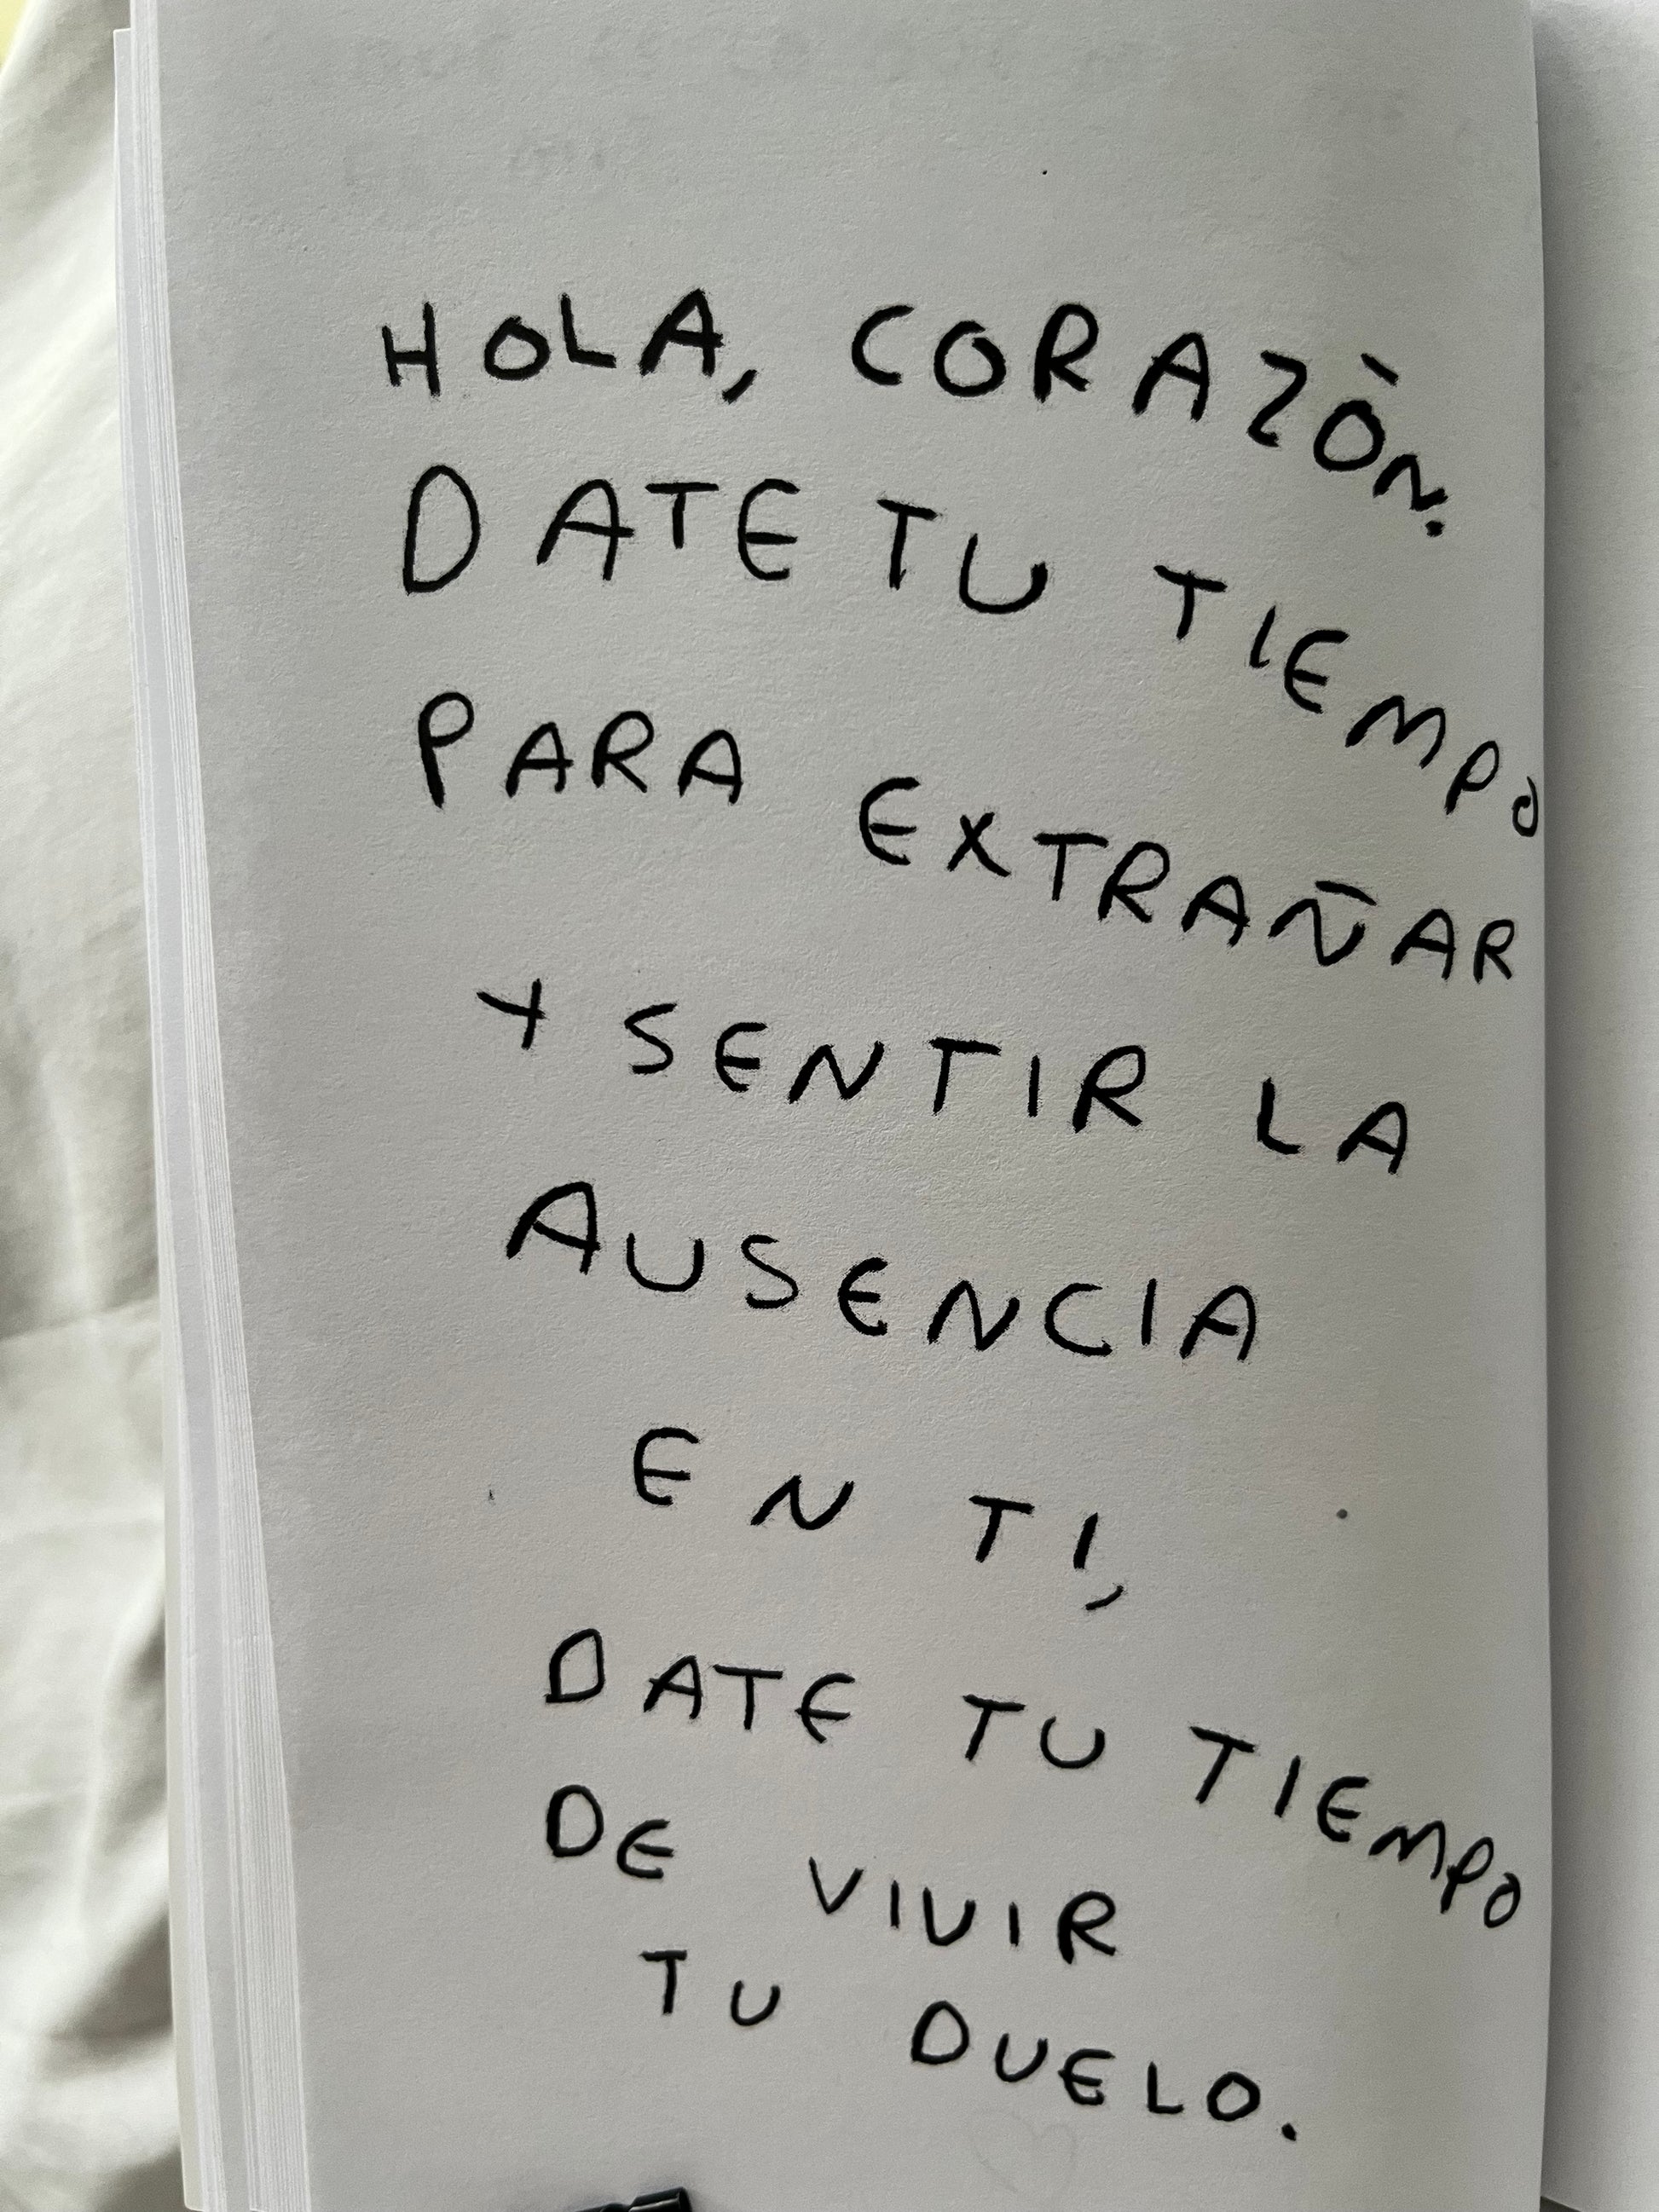 HOLA, CORAZÒN.
DATE TU TIEMPO
PARA EXTRAÑAR
Y SENTIR LA
AUSENCIA
EN TI,
DATE TU TIEMPO
DE VIVIR
TU DUELO.